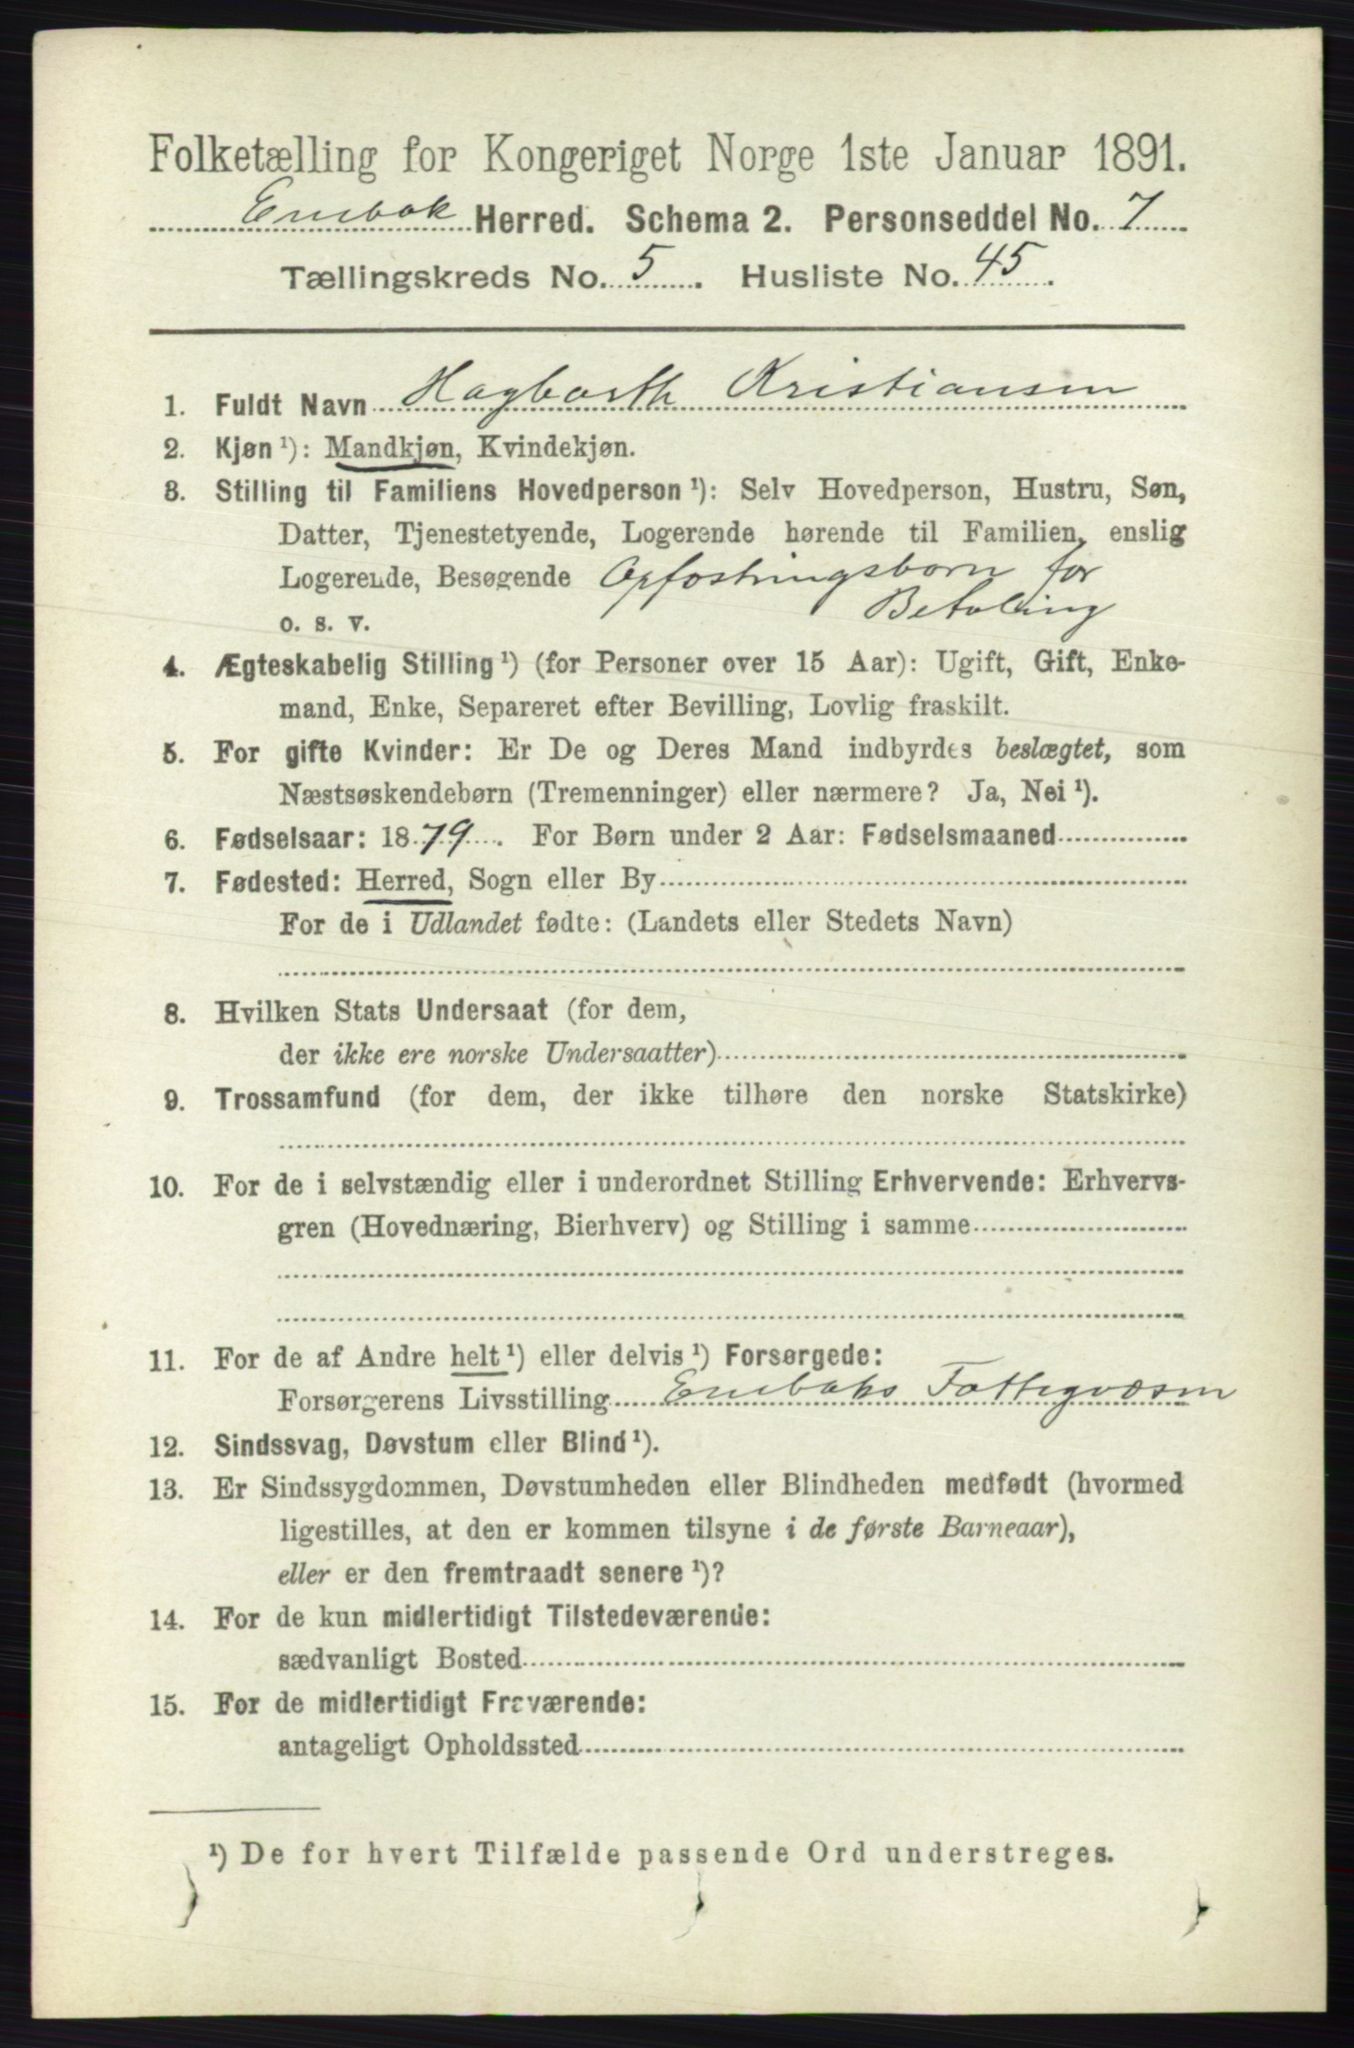 Folketælling for Kongeriget Norge 1ste Januar 1891.
Enebak Herred. Schema 2. Personseddel No. 7
Tællingskreds No. 5. Husliste No. 45.
1. Fuldt Navn Hagbarth Kristiansen
2. Kjøn ¹): Mandkjøn, Kvindekjøn.
3. Stilling til Familiens Hovedperson ¹): Selv Hovedperson, Hustru, Søn,
Datter, Tjenestetyende, Logerende hørende til Familien, enslig
Logerende, Besøgende Opfostringsbarn for
o. s. v. Betaling
4. Ægteskabelig Stilling ¹) (for Personer over 15 Aar): Ugift, Gift, Enke-
mand, Enke, Separeret efter Bevilling, Lovlig fraskilt.
5. For gifte Kvinder: Er De og Deres Mand indbyrdes beslægtet, som
Næstsøskendebørn (Tremenninger) eller nærmere? Ja, Nei ¹).
6. Fødselsaar: 1879. For Børn under 2 Aar: Fødselsmaaned
7. Fødested: Herred, Sogn eller By
For de i Udlandet fødte: (Landets eller Stedets Navn)
8. Hvilken Stats Undersaat (for dem,
der ikke ere norske Undersaatter)
9. Trossamfund (for dem, der ikke tilhøre den norske Statskirke)
10. For de i selvstændig eller i underordnet Stilling Erhvervende: Erhvervs-
gren (Hovednæring, Bierhverv) og Stilling i samme
11. For de af Andre helt ¹) eller delvis ¹) Forsørgede:
Forsørgerens Livsstilling Enebaks Fattigvæsen
12. Sindssvag, Døvstum eller Blind ¹).
13. Er Sindssygdommen, Døvstumheden eller Blindheden medfødt (hvormed
ligestilles, at den er kommen tilsyne i de første Barneaar),
eller er den fremtraadt senere ¹)?
14. For de kun midlertidigt Tilstedeværende:
sædvanligt Bosted
15. For de midlertidigt Fraværende:
antageligt Opholdssted
¹) De for hvert Tilfælde passende Ord understreges.